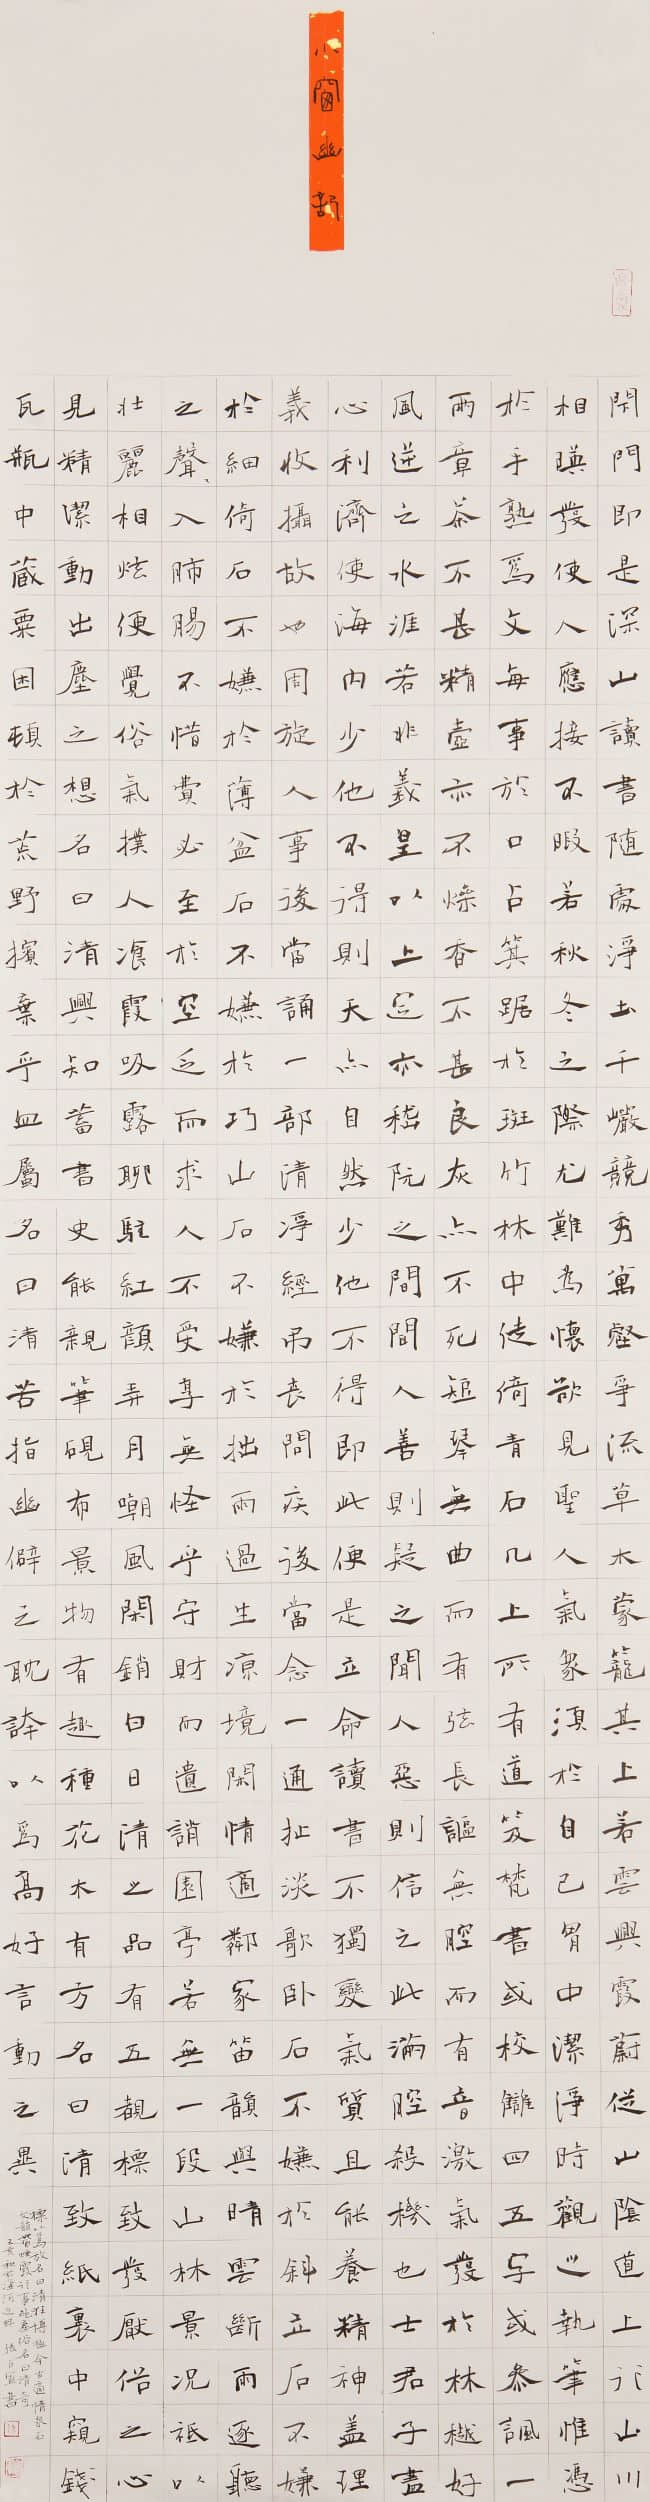 小窗幽記
閑門即是深山讀書随處淨土千巖競秀萬壑爭流草木蒙籠其上若雲興霞蔚從山陰道上行山川
相暎發使人應接不暇若秋冬之際尤難為懷欲見聖人氣象須於自己胷中潔淨時觀之執筆惟憑
於手熟爲文每事於口占箕踞於斑竹林中徙倚青石几上所有道笈梵書或校讎四五字或參諷一
兩章茶不甚精壺亦不燥香不甚良灰亦不死短琴無曲而有弦長謳無腔而有音激氣發於林樾好
風逆之水涯若非羲皇以上定亦嵇阮之間聞人善則疑之聞人惡則信之此滿腔殺機也士君子盡
心利濟使海內少他不得則天亦自然少他不得即此便是立命讀書不獨變氣質且能養精神盖理
義收攝故也周旋人事後當誦一部清淨經弔喪問疾後當念一通扯淡歌卧石不嫌於斜立石不嫌
於細倚石不嫌於薄盆石不嫌於巧山石不嫌於拙雨過生凉境閑情適鄰家笛韻與晴雲斷雨逐聽
之聲聲入肺腸不惜費必至於空乏而求人不受享無怪乎守財而遺誚園亭若無一段山林景况祗以
壯麗相炫便覺俗氣撲人飡霞吸露聊駐紅顏弄月嘲風閑銷白日清之品有五覩標致發厭俗之心
見精潔動出塵之想名曰清興知蓄書史能親筆硯布景物有趣種花木有方名曰清致紙裹中窺錢
瓦瓶中蔵粟困頓於荒野擯棄乎血屬名曰清苦指幽僻之耽誇以爲髙好言動之異
標以爲放名曰清狂博極今古適情泉石
文韻帶煙霞行事絕塵俗名曰清奇